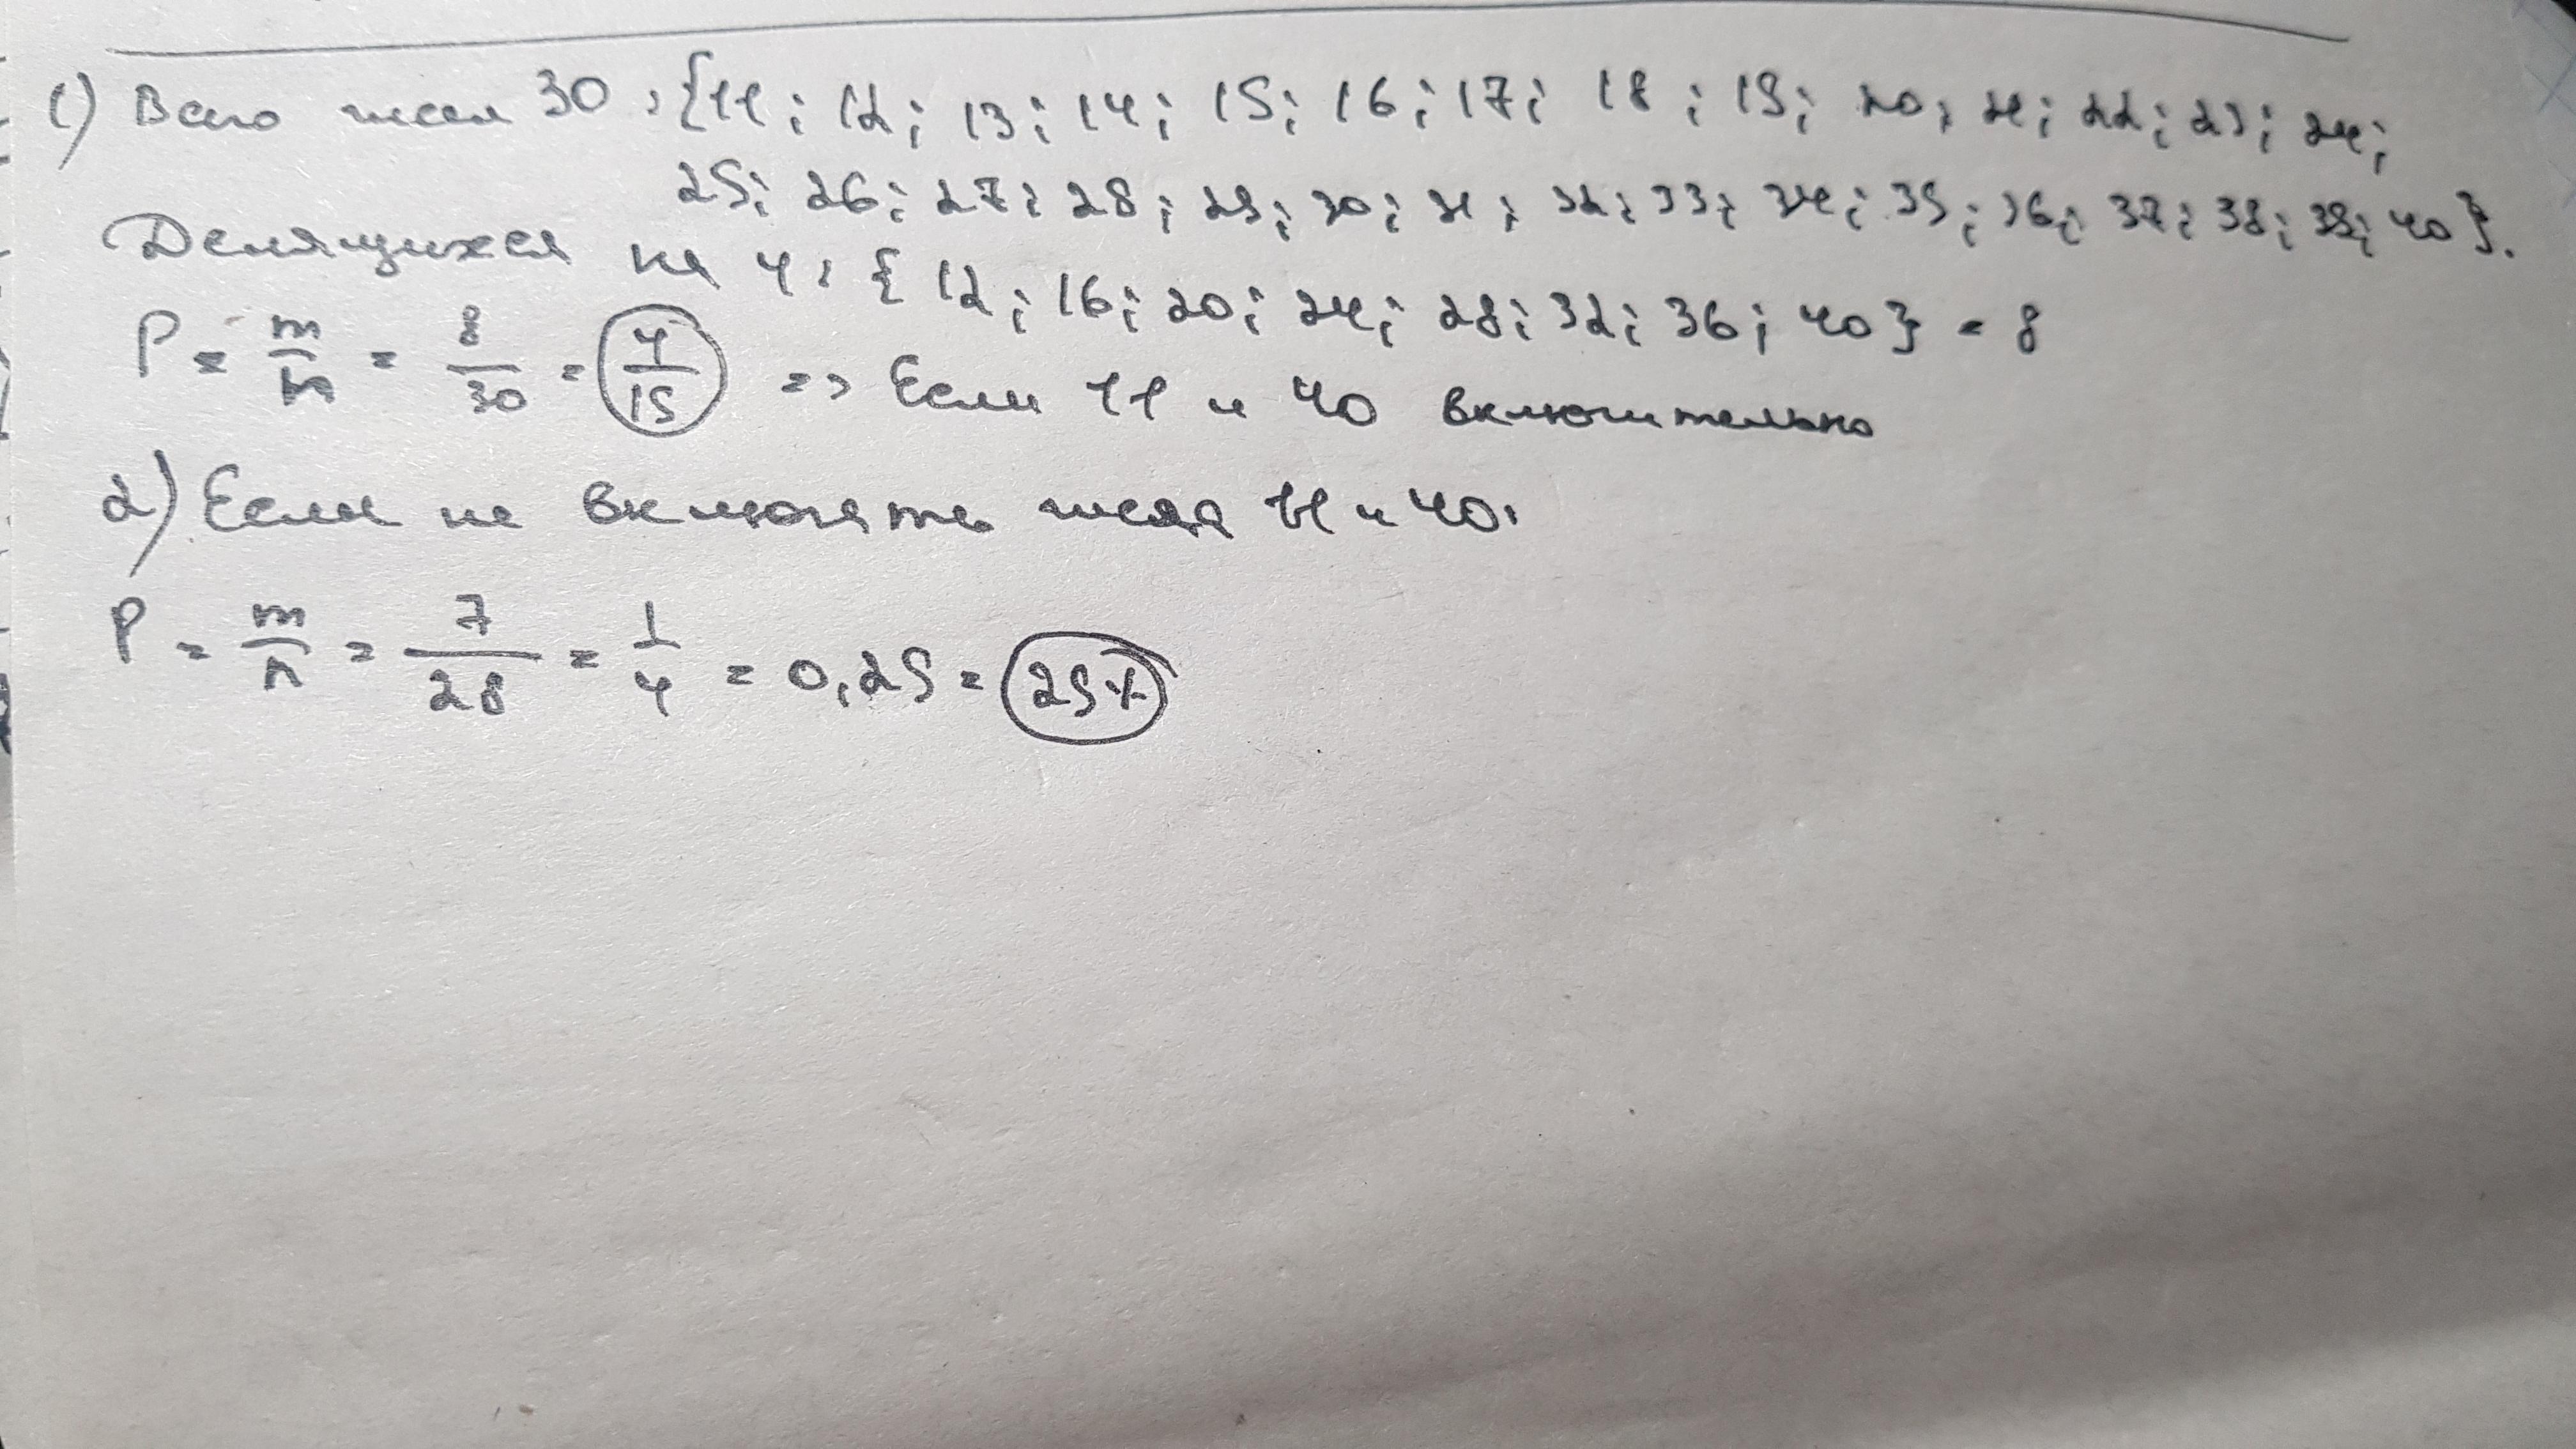 1) Всего чисел 30: {11; 12; 13; 14; 15; 16; 17; 18; 19; 20; 21; 22; 23; 24;
25; 26; 27; 28; 29; 30; 31; 32; 33; 34; 35; 36; 37; 38; 39; 40}.
Делящихся на 4: {12; 16; 20; 24; 28; 32; 36; 40} = 8
P = m/n = 8/30 = 4/15 => Если 11 и 40 включительно
2) Если не включать числа 11 и 40:
P = m/n = 7/28 = 1/4 = 0,25 = 25%